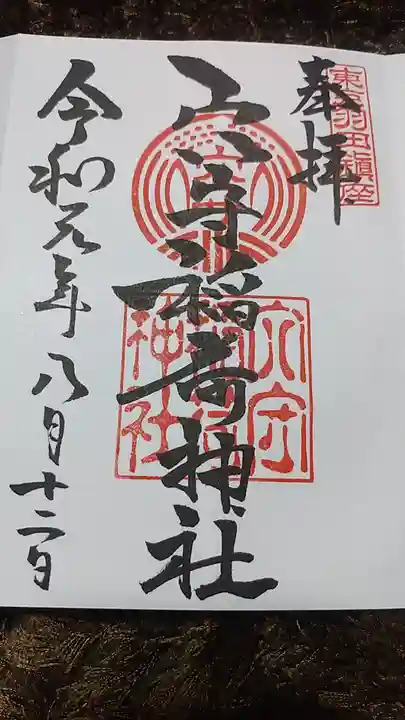 東京羽田鎮座
奉拝
穴守稲荷神社
穴守稲荷神社
令和元年八月十二日